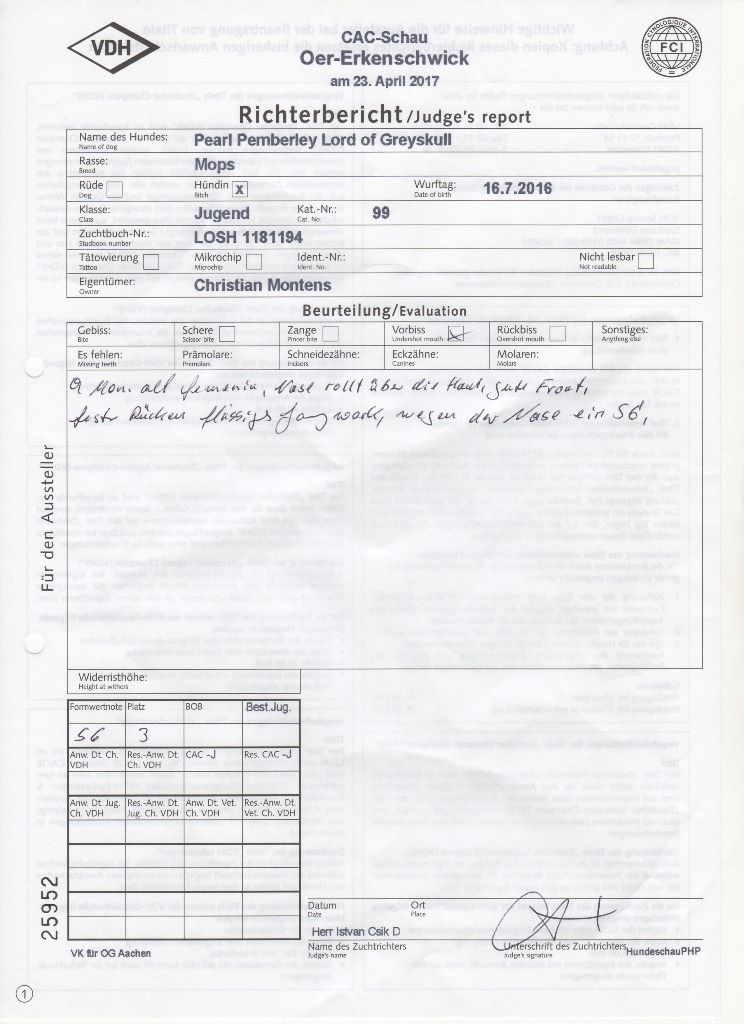 VDH
CAC-Schau
Oer-Erkenschwick
am 23. April 2017
FEDERATION CYNOLOGIQUE INTERNATIONALE
FCI
Richterbericht /Judge's report
Name des Hundes: Pearl Pemberley Lord of Greyskull
Name of dog
Rasse: Mops
Breed
Rüde Hündin x Wurftag: 16.7.2016
Dog Bitch Date of birth
Klasse: Jugend Kat.-Nr.: 99
Class Cat. No.
Zuchtbuch-Nr.: LOSH 1181194
Studbook number
Tätowierung Mikrochip Ident.-Nr.: Nicht lesbar
Tattoo Microchip Ident. No. Not readable
Eigentümer: Christian Montens
Owner
Beurteilung/Evaluation
Gebiss: Schere Zange Vorbiss Rückbiss Sonstiges:
Bite Scissor bite Pincer bite Undershot mouth Overshot mouth Anything else
Es fehlen: Prämolare: Schneidezähne: Eckzähne: Molaren:
Missing teeth Premolars Incisors Canines Molars
9 Mon. alt feminin, Nase rollt über die Haut, gute Front,
Rücken flüssiges Gangwerk, wegen der Nase ein SG,
Für den Aussteller
Widerristhöhe:
Height at withers
Formwertnote Platz BOB Best.Jug.
SG 3
Anw. Dt. Ch. VDH Res.-Anw. Dt. Ch. VDH CAC -J Res. CAC -J
Anw. Dt. Jug. Ch. VDH Res.-Anw. Dt. Jug. Ch. VDH Anw. Dt. Vet. Ch. VDH Res.-Anw. Dt. Vet. Ch. VDH
25952
Datum Ort
Date Place
Herr Istvan Csik D
Name des Zuchtrichters Unterschrift des Zuchtrichters HundeschauPHP
Judge's name Judge's signature
VK für OG Aachen
1